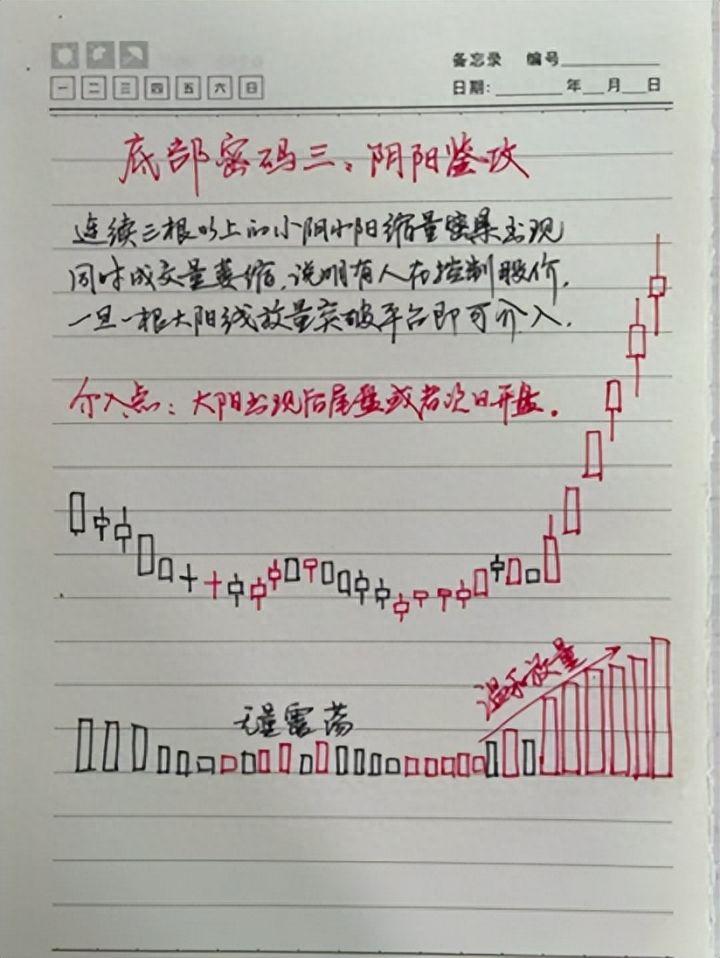 备忘录 编号
日期: 年 月 日
一 二 三 四 五 六 日
底部密码三：阴阳鉴攻
连续三根以上的小阴小阳缩量密集出现
同时成交量萎缩，说明有人在控制股价，
一旦一根大阳线放量突破平台即可介入．
介入点：大阳出现后尾盘或者次日开盘．
温和放量
无量震荡